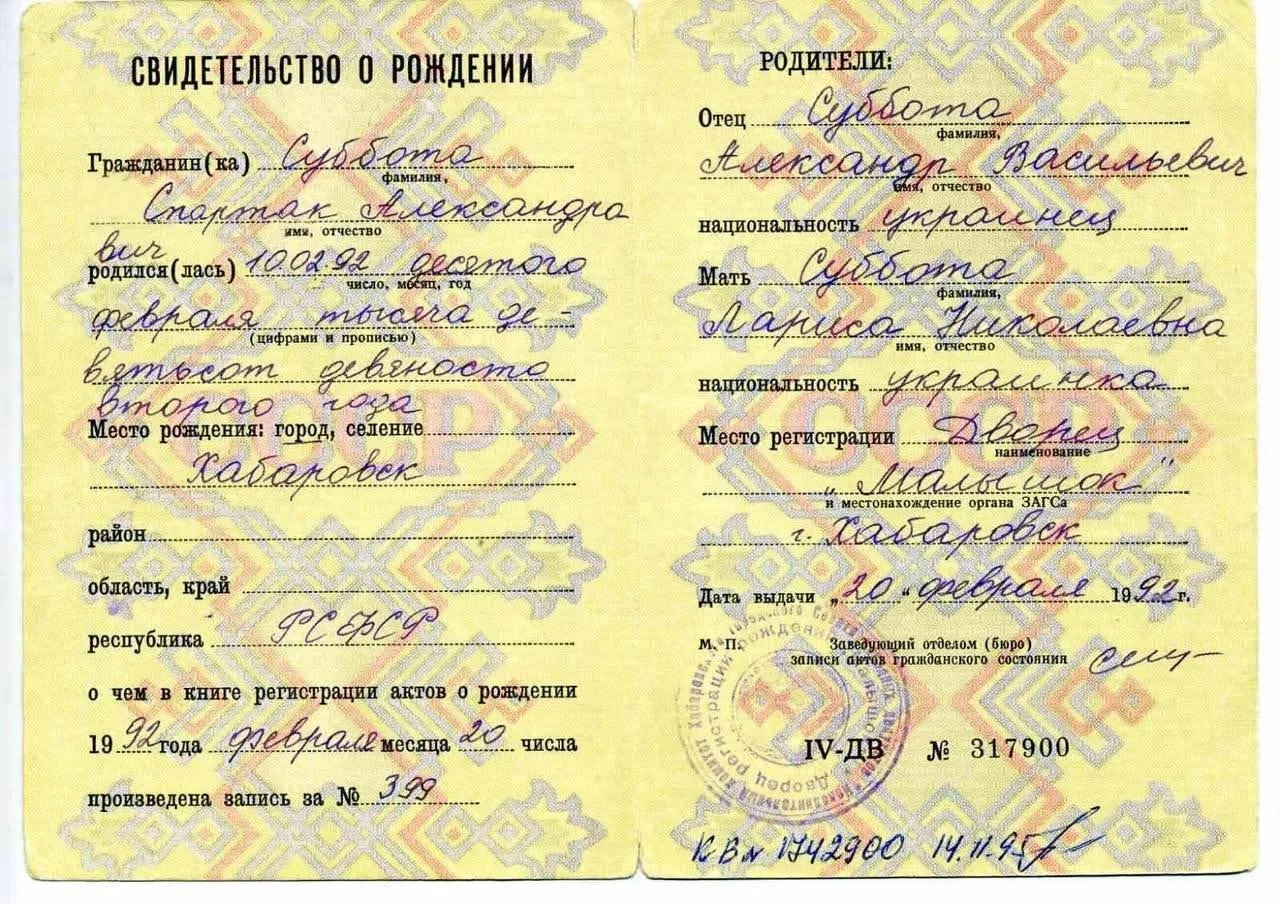 СВИДЕТЕЛЬСТВО О РОЖДЕНИИ
Гражданин(ка) Суббота
фамилия,
Спартак Александра
имя, отчество
вич
родился(лась) 10.02.92 десятого
число, месяц, год
февраля тысяча де-
(цифрами и прописью)
вятьсот девяносто
второго года
Место рождения: город, селение
Хабаровск
район
область, край
республика РСФСР
о чем в книге регистрации актов о рождении
1992 года февраля месяца 20 числа
произведена запись за № 399
РОДИТЕЛИ:
Отец Суббота
фамилия,
Александр Васильевич
имя, отчество
национальность украинец
Мать Суббота
фамилия,
Лариса Николаевна
имя, отчество
национальность украинка
Место регистрации Дворец
наименование
"Малышок"
и местонахождение органа ЗАГСа
г. Хабаровск
Дата выдачи „20" февраля 1992 г.
М. П. Заведующий отделом (бюро)
записи актов гражданского состояния
IV-ДВ № 317900
КВ № 1742900 14.11.95
СССР
СССР